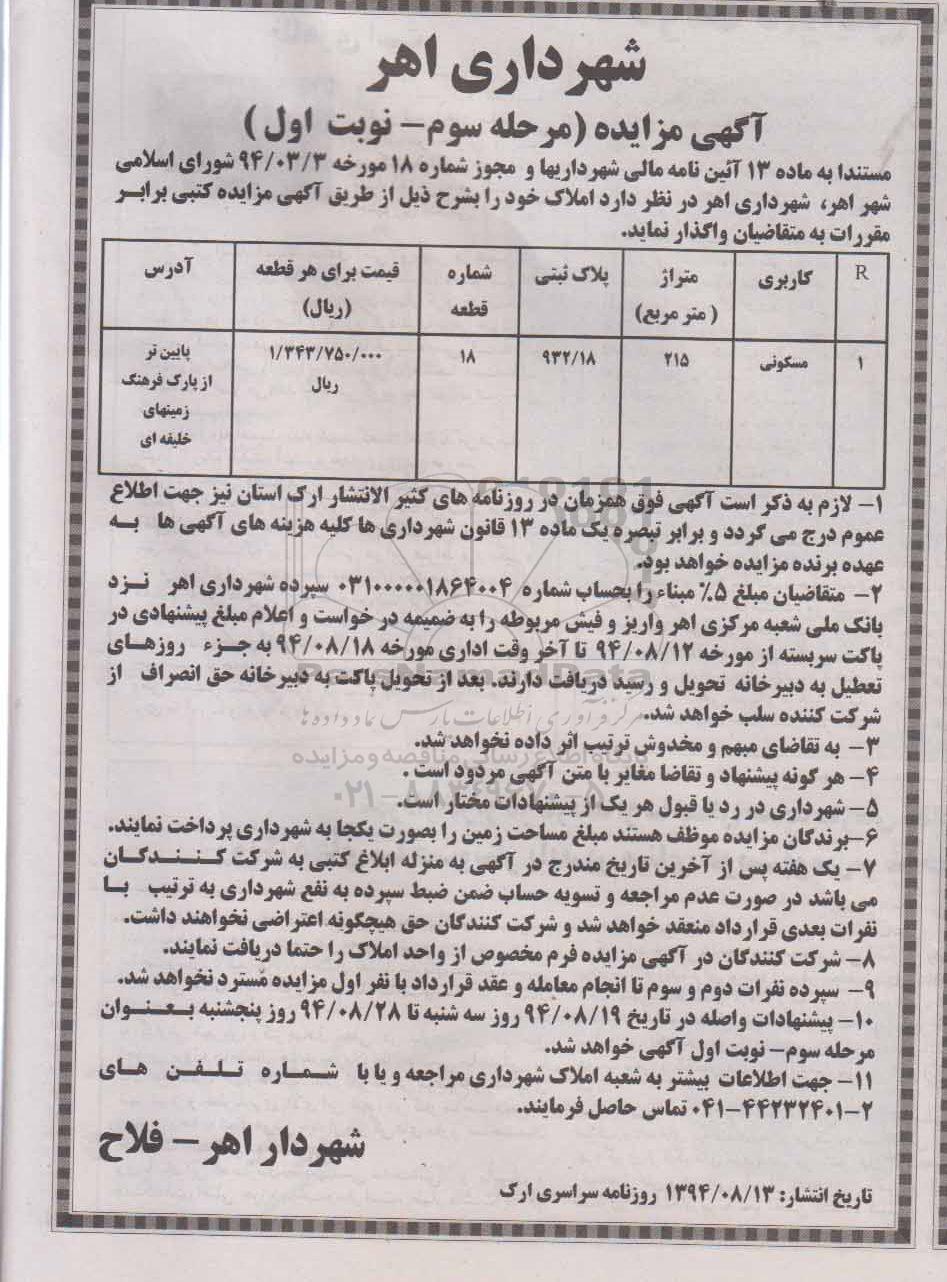 شهرداری اهر
آگهی مزایده (مرحله سوم- نوبت اول)
مستندا به ماده ۱۳ آئین نامه مالی شهرداریها و مجوز شماره ۱۸ مورخه ۹۴/۰۳/۳ شورای اسلامی
شهر اهر، شهرداری اهر در نظر دارد املاک خود را بشرح ذیل از طریق آگهی مزایده کتبی برابر
مقررات به متقاضیان واگذار نماید.
R کاربری متراژ (متر مربع) پلاک ثبتی شماره قطعه قیمت برای هر قطعه (ریال) آدرس
۱ مسکونی ۲۱۵ ۹۳۲/۱۸ ۱۸ ۱/۳۴۳/۷۵۰/۰۰۰ ریال پایین تر از پارک فرهنگ زمینهای خلیفه ای
۱- لازم به ذکر است آگهی فوق همزمان در روزنامه های کثیر الانتشار ارک استان نیز جهت اطلاع
عموم درج می گردد و برابر تبصره یک ماده ۱۳ قانون شهرداری ها کلیه هزینه های آگهی ها به
عهده برنده مزایده خواهد بود.
۲- متقاضیان مبلغ ۵٪ مبناء را بحساب شماره ۰۳۱۰۰۰۰۰۱۸۶۴۰۰۴ سپرده شهرداری اهر نزد
بانک ملی شعبه مرکزی اهر واریز و فیش مربوطه را به ضمیمه درخواست و اعلام مبلغ پیشنهادی در
پاکت سربسته از مورخه ۹۴/۰۸/۱۲ تا آخر وقت اداری مورخه ۹۴/۰۸/۱۸ به جزء روزهای
تعطیل به دبیرخانه تحویل و رسید دریافت دارند. بعد از تحویل پاکت به دبیرخانه حق انصراف از
شرکت کننده سلب خواهد شد.
۳- به تقاضای مبهم و مخدوش ترتیب اثر داده نخواهد شد.
۴- هر گونه پیشنهاد و تقاضا مغایر با متن آگهی مردود است.
۵- شهرداری در رد یا قبول هر یک از پیشنهادات مختار است.
۶-برندگان مزایده موظف هستند مبلغ مساحت زمین را بصورت یکجا به شهرداری پرداخت نمایند.
۷- یک هفته پس از آخرین تاریخ مندرج در آگهی به منزله ابلاغ کتبی به شرکت کنندکان
می باشد در صورت عدم مراجعه و تسویه حساب ضمن ضبط سپرده به نفع شهرداری به ترتیب با
نفرات بعدی قرارداد منعقد خواهد شد و شرکت کنندگان حق هیچگونه اعتراضی نخواهند داشت.
۸- شرکت کنندگان در آگهی مزایده فرم مخصوص از واحد املاک را حتما دریافت نمایند.
۹- سپرده نفرات دوم و سوم تا انجام معامله و عقد قرارداد با نفر اول مزایده مسترد نخواهد شد.
۱۰- پیشنهادات واصله در تاریخ ۹۴/۰۸/۱۹ روز سه شنبه تا ۹۴/۰۸/۲۸ روز پنجشنبه بعنوان
مرحله سوم- نوبت اول آگهی خواهد شد.
۱۱- جهت اطلاعات بیشتر به شعبه املاک شهرداری مراجعه و یا با شماره تلفن های
۰۴۱-۴۴۲۳۲۴۰۱-۲ تماس حاصل فرمایند.
شهردار اهر- فلاح
تاریخ انتشار: ۱۳۹۴/۰۸/۱۳ روزنامه سراسری ارک
ParsNamadData
مرکز فرآوری اطلاعات پارس نماد داده ها
پایگاه اطلاع رسانی مناقصه و مزایده